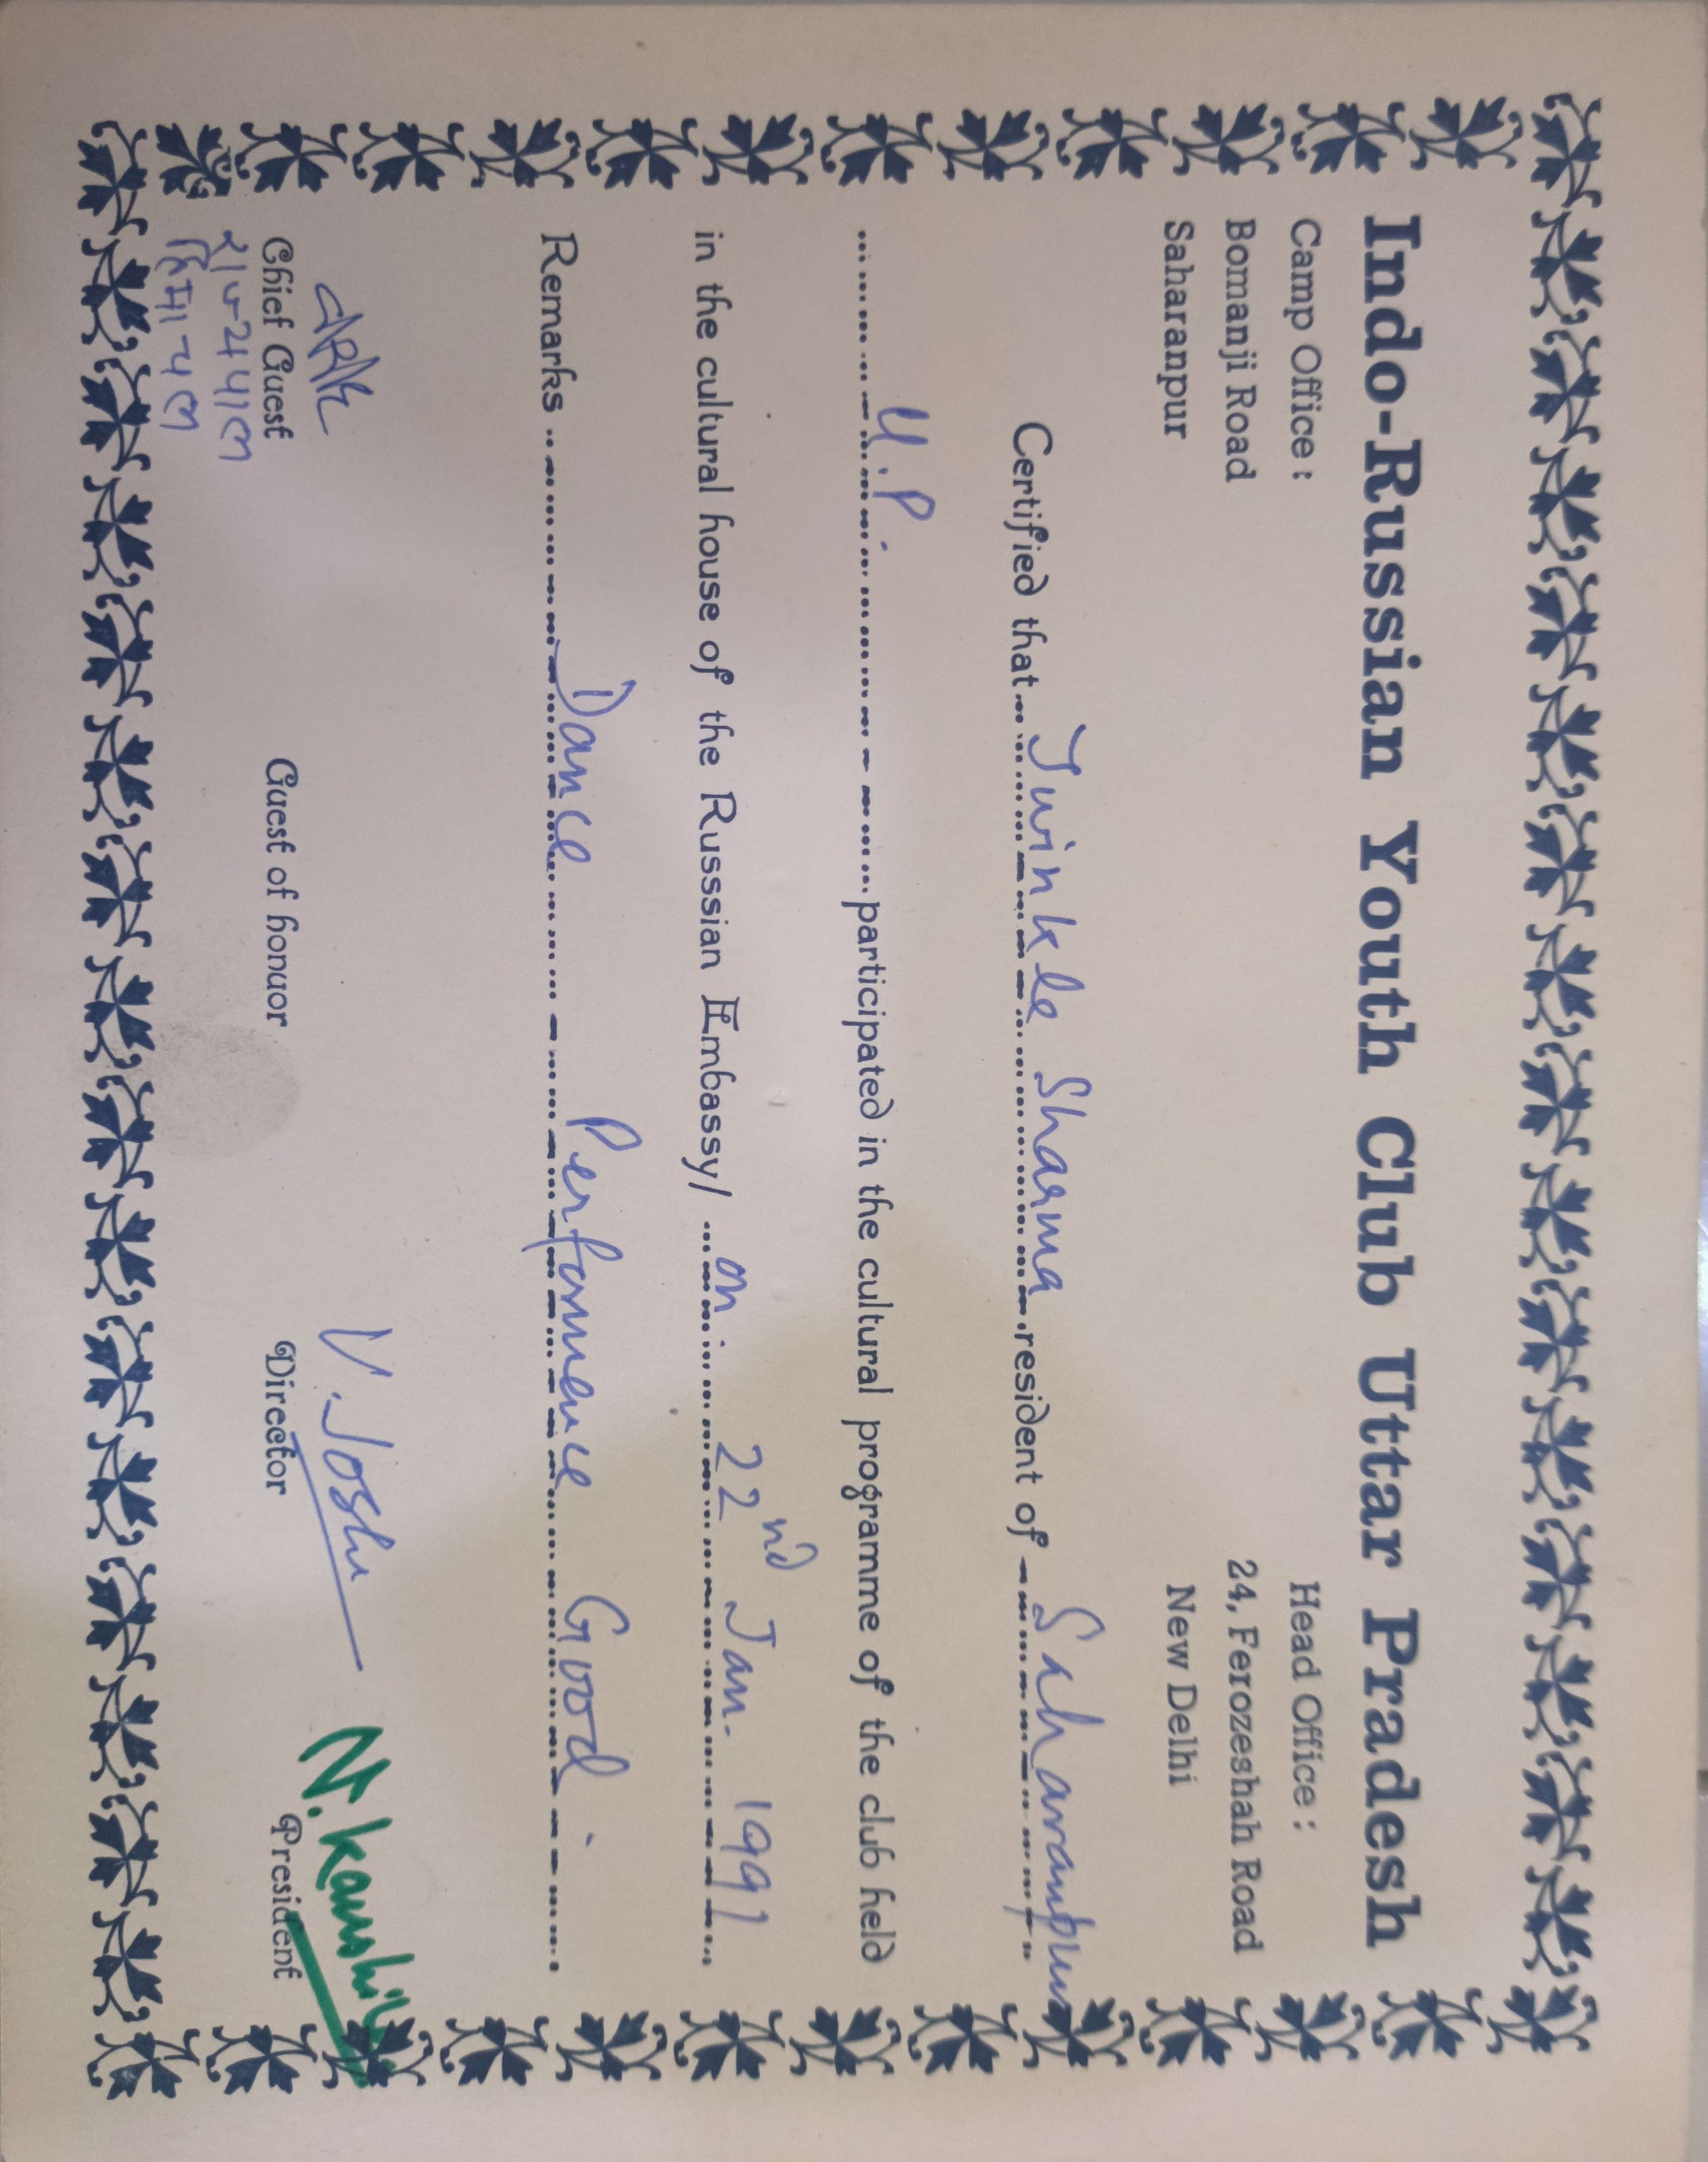 Indo-Russian Youth Club Uttar Pradesh
Camp Office :
Bomanji Road
Saharanpur
Head Office :
24, Ferozeshah Road
New Delhi
Certified that Twinkle Sharma resident of Saharanpur
U.P. participated in the cultural programme of the club held
in the cultural house of the Russian Embassy/ on 22nd Jan. 1991
Remarks Dance Performence Good.
V. Joshi
N. Kaushik
Chief Guest
Guest of honuor
Director
President
राज्यपाल
हिमाचल